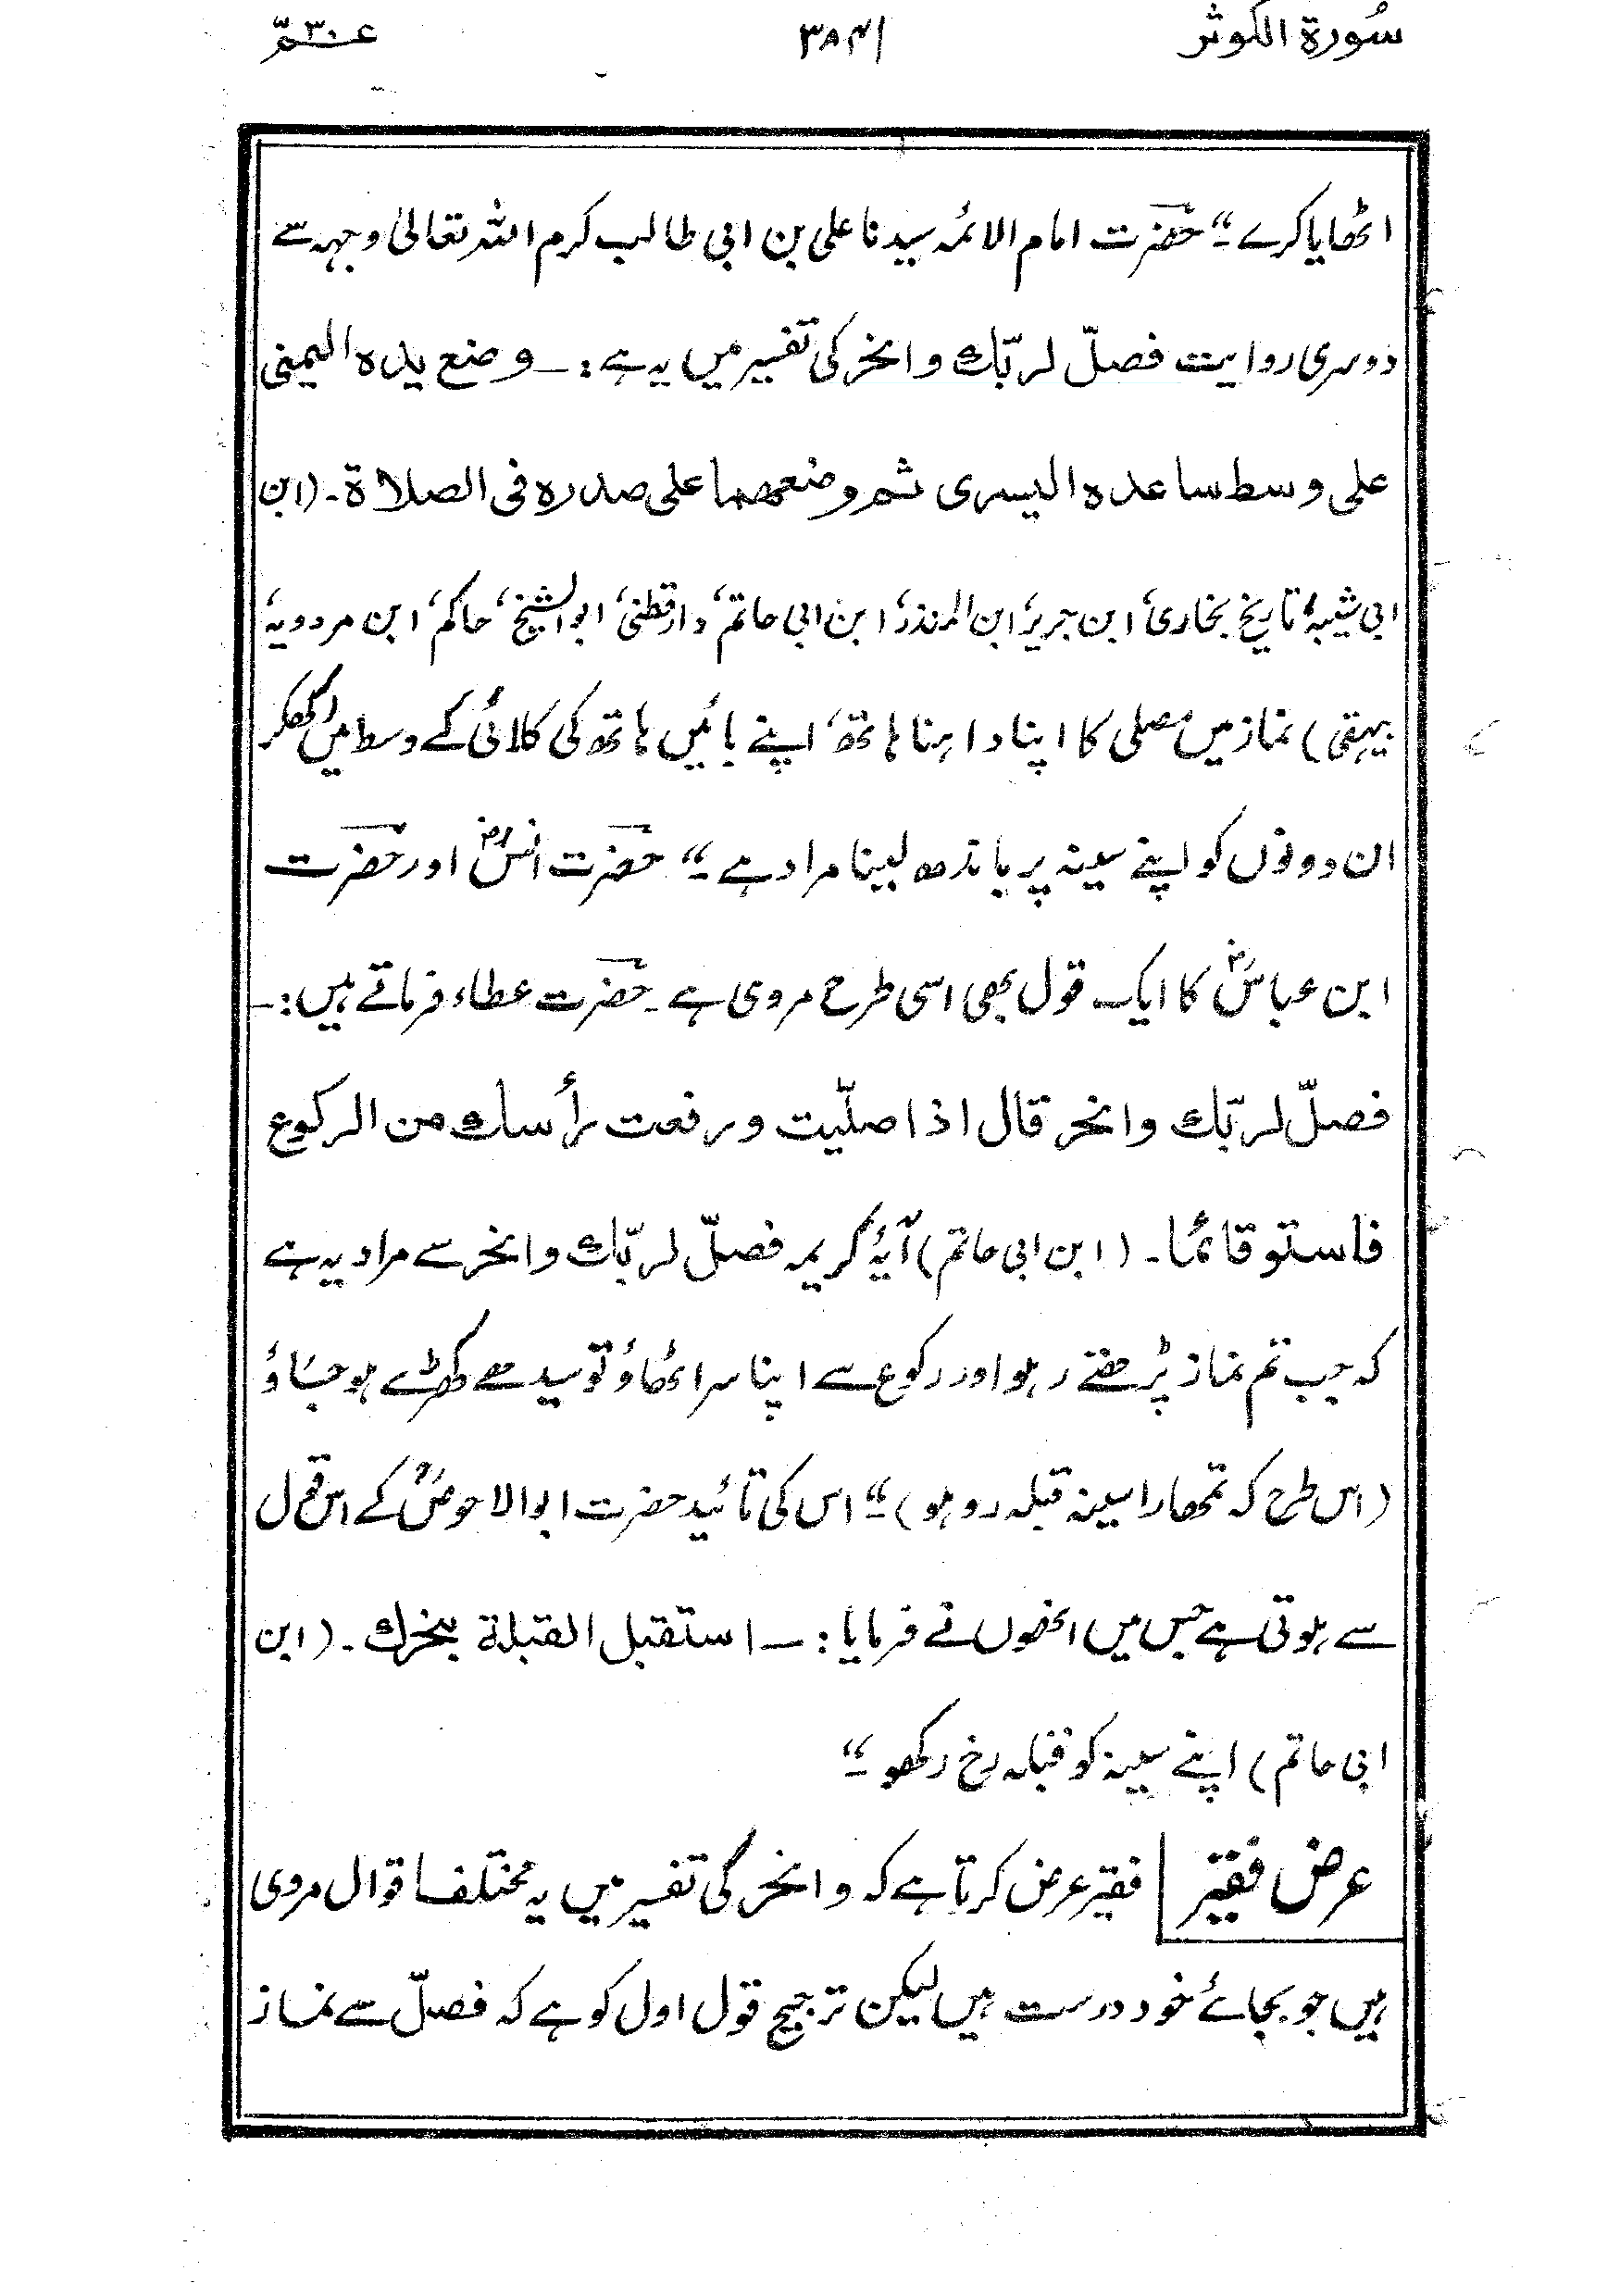 سُورة الکوثر ۳۸۴۱ عمّ ۳۰
اٹھایا کرے۔“ حضرت امام الائمہ سیدنا علی بن ابی طالب کرم اللہ تعالیٰ وجہہ سے
دوسری روایت فصلّ لربّك وانحر کی تفسیر میں یہ ہے :۔ وضع یدہ الیمنی
علی وسط ساعدہ الیسری ثم وضعھما علی صدرہ فی الصلاۃ۔ (ابن
ابی شیبہ‘ تاریخ بخاری‘ ابن جریر‘ ابن المنذر‘ ابن ابی حاتم‘ دارقطنی‘ ابوالشیخ‘ حاکم‘ ابن مردویہ‘
بیہقی) نماز میں مصلی کا اپنا داہنا ہاتھ‘ اپنے بائیں ہاتھ کی کلائی کے وسط میں رکھکر
ان دونوں کو اپنے سینہ پر باندھ لینا مراد ہے۔“ حضرت انسؓ اور حضرت
ابن عباسؓ کا ایک قول بھی اسی طرح مروی ہے۔ حضرت عطاء فرماتے ہیں :۔
فصلّ لربّك وانحر قال اذا صلّیت ورفعت رأسك من الركوع
فاستو قائمًا۔ (ابن ابی حاتم) آیۂ کریمہ فصلّ لربّك وانحر سے مراد یہ ہے
کہ جب تم نماز پڑھتے رہو اور رکوع سے اپنا سر اٹھاؤ تو سیدھے کھڑے ہو جاؤ
(اس طرح کہ تمھارا سینہ قبلہ رو ہو)۔“ اس کی تائید حضرت ابوالاحوصؓ کے اس قول
سے ہوتی ہے جس میں انھوں نے فرمایا :۔ استقبل القبلة بنحرك۔ (ابن
ابی حاتم) اپنے سینہ کو قبلہ رخ رکھو۔“
عرض فقیر فقیر عرض کرتا ہے کہ وانحر کی تفسیر میں یہ مختلف اقوال مروی
ہیں جو بجائے خود درست ہیں لیکن ترجیح قول اول کو ہے کہ فصلّ سے نماز